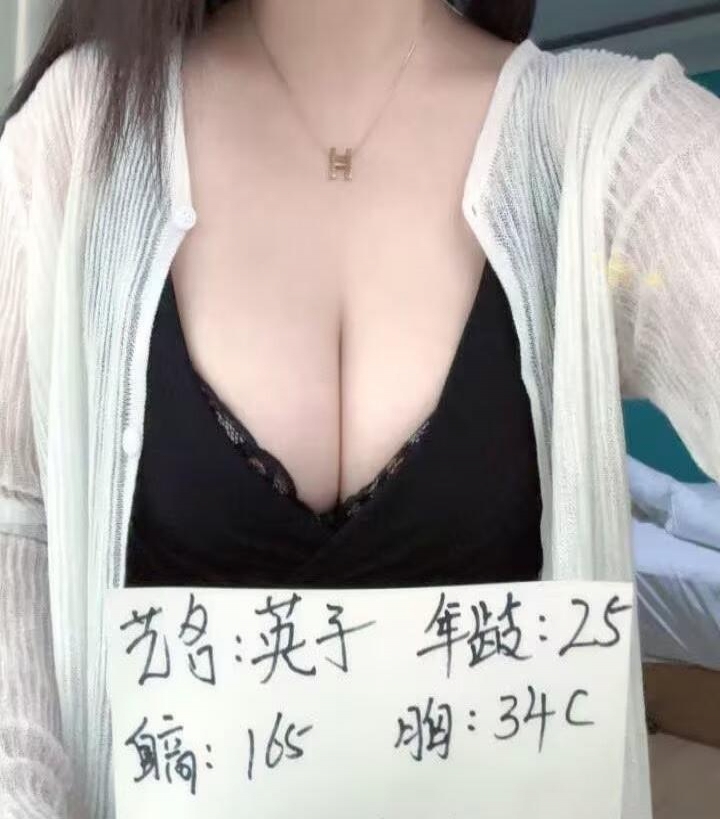 艺名:英子 年龄:25
身高:165 胸:34C